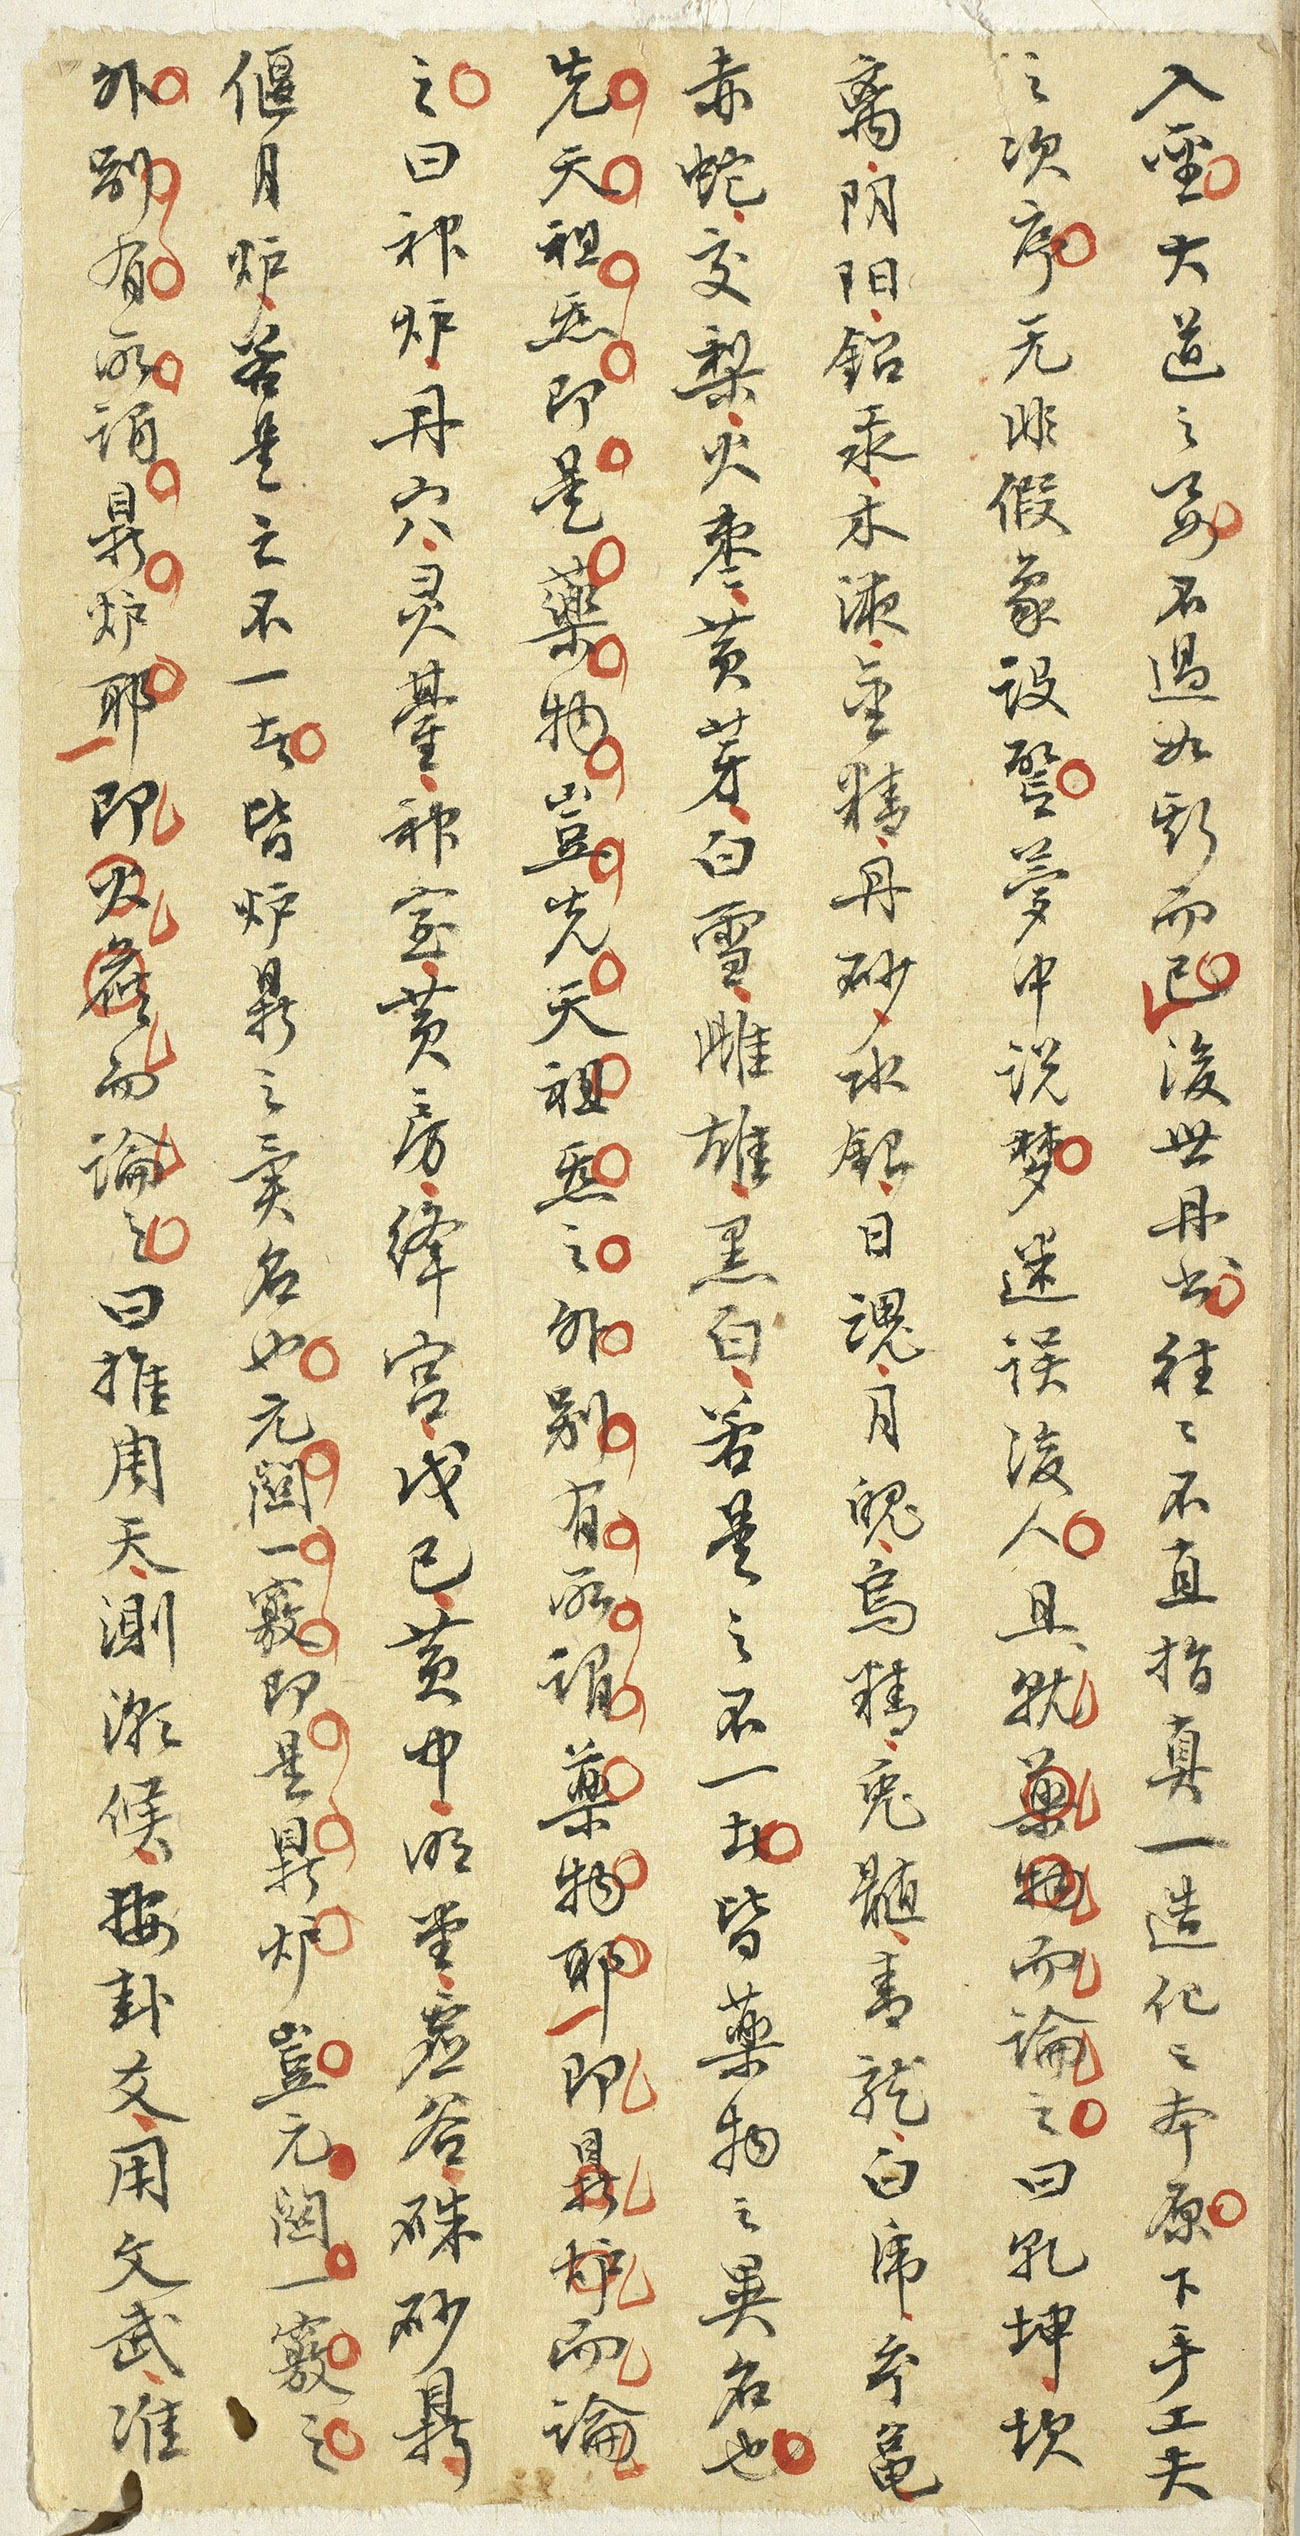 入聖大道之要不過如斯而已後世丹书往〻不直指真一造化之本原下手工夫
之次序无非假象設譬夢中说梦迷误後人且就藥物而論之曰乾坤坎
离阴阳鉛汞木液金精丹砂水銀日魂月魄烏精兔髓青龙白虎玄龟
赤蛇交梨火枣黄芽白雪雌雄黑白若是之不一者皆藥物之異名也
先天祖炁即是藥物豈先天祖炁之外别有所谓藥物耶即鼎炉而論
之曰神炉丹穴灵臺神室黄房绛宫戊己黄中明堂虚谷硃砂鼎
偃月炉若是之不一者皆炉鼎之異名也元關一竅即是鼎炉豈元關一竅之
外别有所谓鼎炉耶即火候而論之曰推周天測潮候按卦爻用文武准